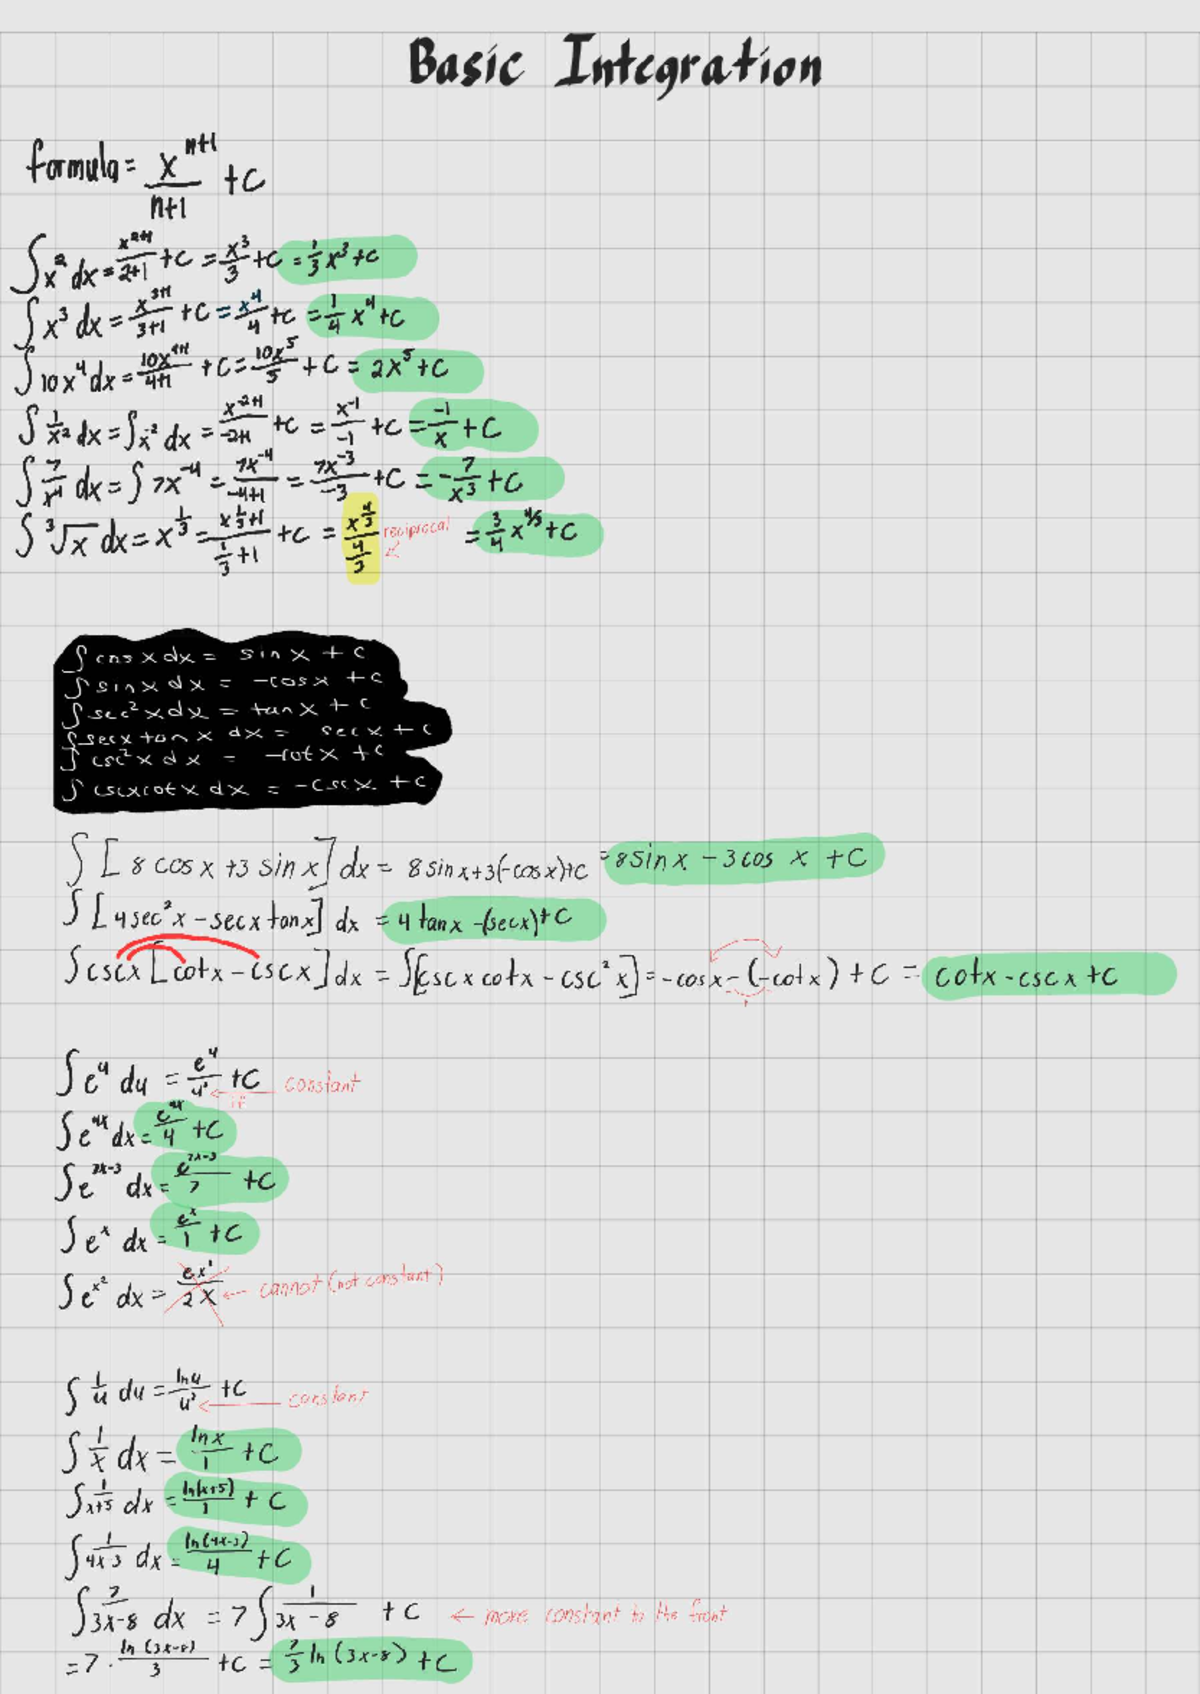 Basic Integration
formula = x^(n+1)/(n+1) + C
∫x² dx = x^(2+1)/(2+1) + C = x³/3 + C = 1/3 x³ + C
∫x³ dx = x^(3+1)/(3+1) + C = x⁴/4 + C = 1/4 x⁴ + C
∫10x⁴ dx = 10x^(4+1)/(4+1) + C = 10x⁵/5 + C = 2x⁵ + C
∫1/x² dx = ∫x⁻² dx = x^(-2+1)/(-2+1) + C = x⁻¹/-1 + C = -1/x + C
∫7/x⁴ dx = ∫7x⁻⁴ = 7x⁻⁴/(-4+1) = 7x⁻³/-3 + C = -7/x³ + C
∫³√x dx = x^(1/3) = x^(1/3+1)/(1/3+1) + C = x^(4/3)/(4/3) reciprocal = 3/4 x^(4/3) + C
∫cos x dx = sin x + C
∫sin x dx = -cos x + C
∫sec² x dx = tan x + C
∫sec x tan x dx = sec x + C
∫csc² x dx = -cot x + C
∫csc x cot x dx = -csc x + C
∫[8 cos x + 3 sin x] dx = 8 sin x + 3(-cos x) + C = 8 sin x - 3 cos x + C
∫[4 sec² x - sec x tan x] dx = 4 tan x - (sec x) + C
∫csc x [cot x - csc x] dx = ∫[csc x cot x - csc² x] = -cos x - (-cot x) + C = cot x - csc x + C
∫e^u du = e^u/u' + C ← constant
if
∫e^(4x) dx = e^(4x)/4 + C
∫e^(7x-3) dx = e^(7x-3)/7 + C
∫e^x dx = e^x/1 + C
∫e^(x²) dx = e^(x²)/2x ← cannot (not constant)
∫1/u du = ln u/u' + C ← constant
∫1/x dx = ln x/1 + C
∫1/(x+5) dx = ln(x+5)/1 + C
∫1/(4x-3) dx = ln(4x-3)/4 + C
∫7/(3x-8) dx = 7∫1/(3x-8) + C ← move constant to the front
= 7 · ln(3x-8)/3 + C = 7/3 ln(3x-8) + C